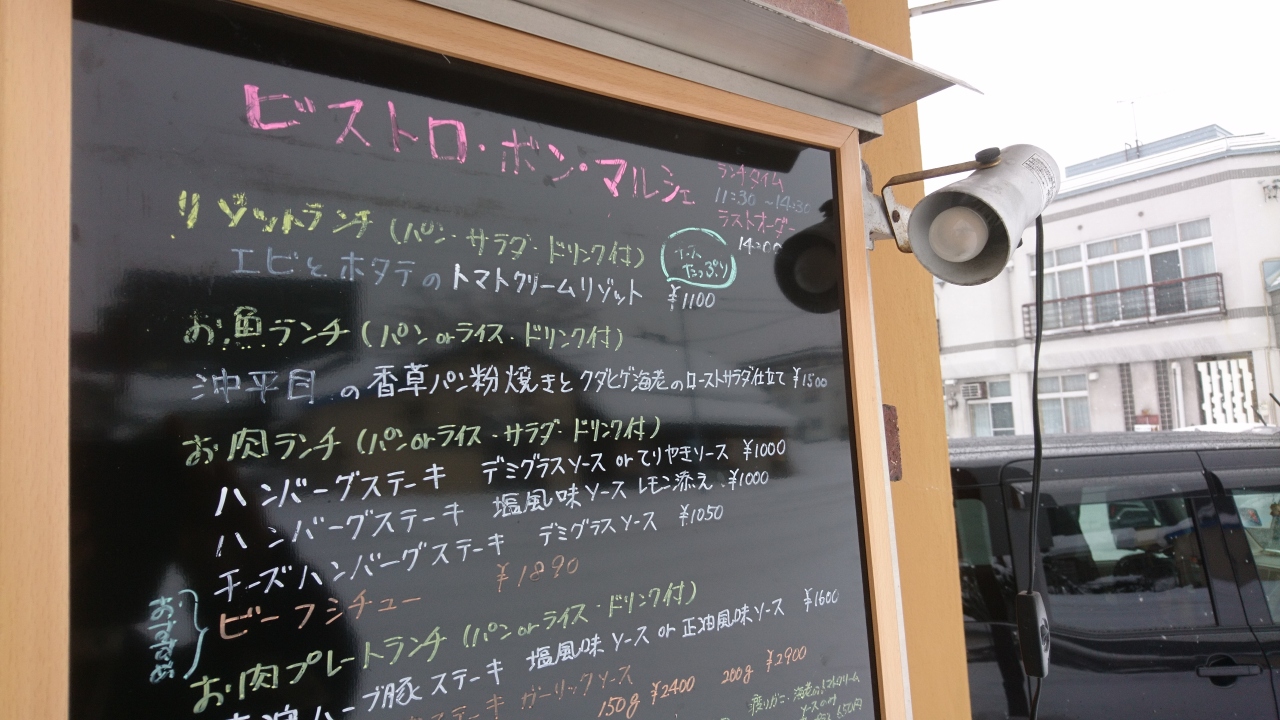 ビストロ・ボン・マルシェ
ランチタイム
11:30～14:30
ラストオーダー
14:00
リゾットランチ(パン・サラダ・ドリンク付)
たっぷり
エビとホタテのトマトクリームリゾット ¥1100
お魚ランチ(パンorライス・ドリンク付)
沖平目の香草パン粉焼きとクダヒゲ海老のローストサラダ仕立て ¥1500
お肉ランチ(パンorライス・サラダ・ドリンク付)
ハンバーグステーキ デミグラスソースorてりやきソース ¥1000
ハンバーグステーキ 塩風味ソースレモン添え ¥1000
チーズハンバーグステーキ デミグラスソース ¥1050
おすすめ
ビーフシチュー ¥1890
お肉プレートランチ(パンorライス・ドリンク付)
ハーブ豚ステーキ 塩風味ソースor正油風味ソース ¥1600
ステーキ ガーリックソース 150g ¥2400 200g ¥2900